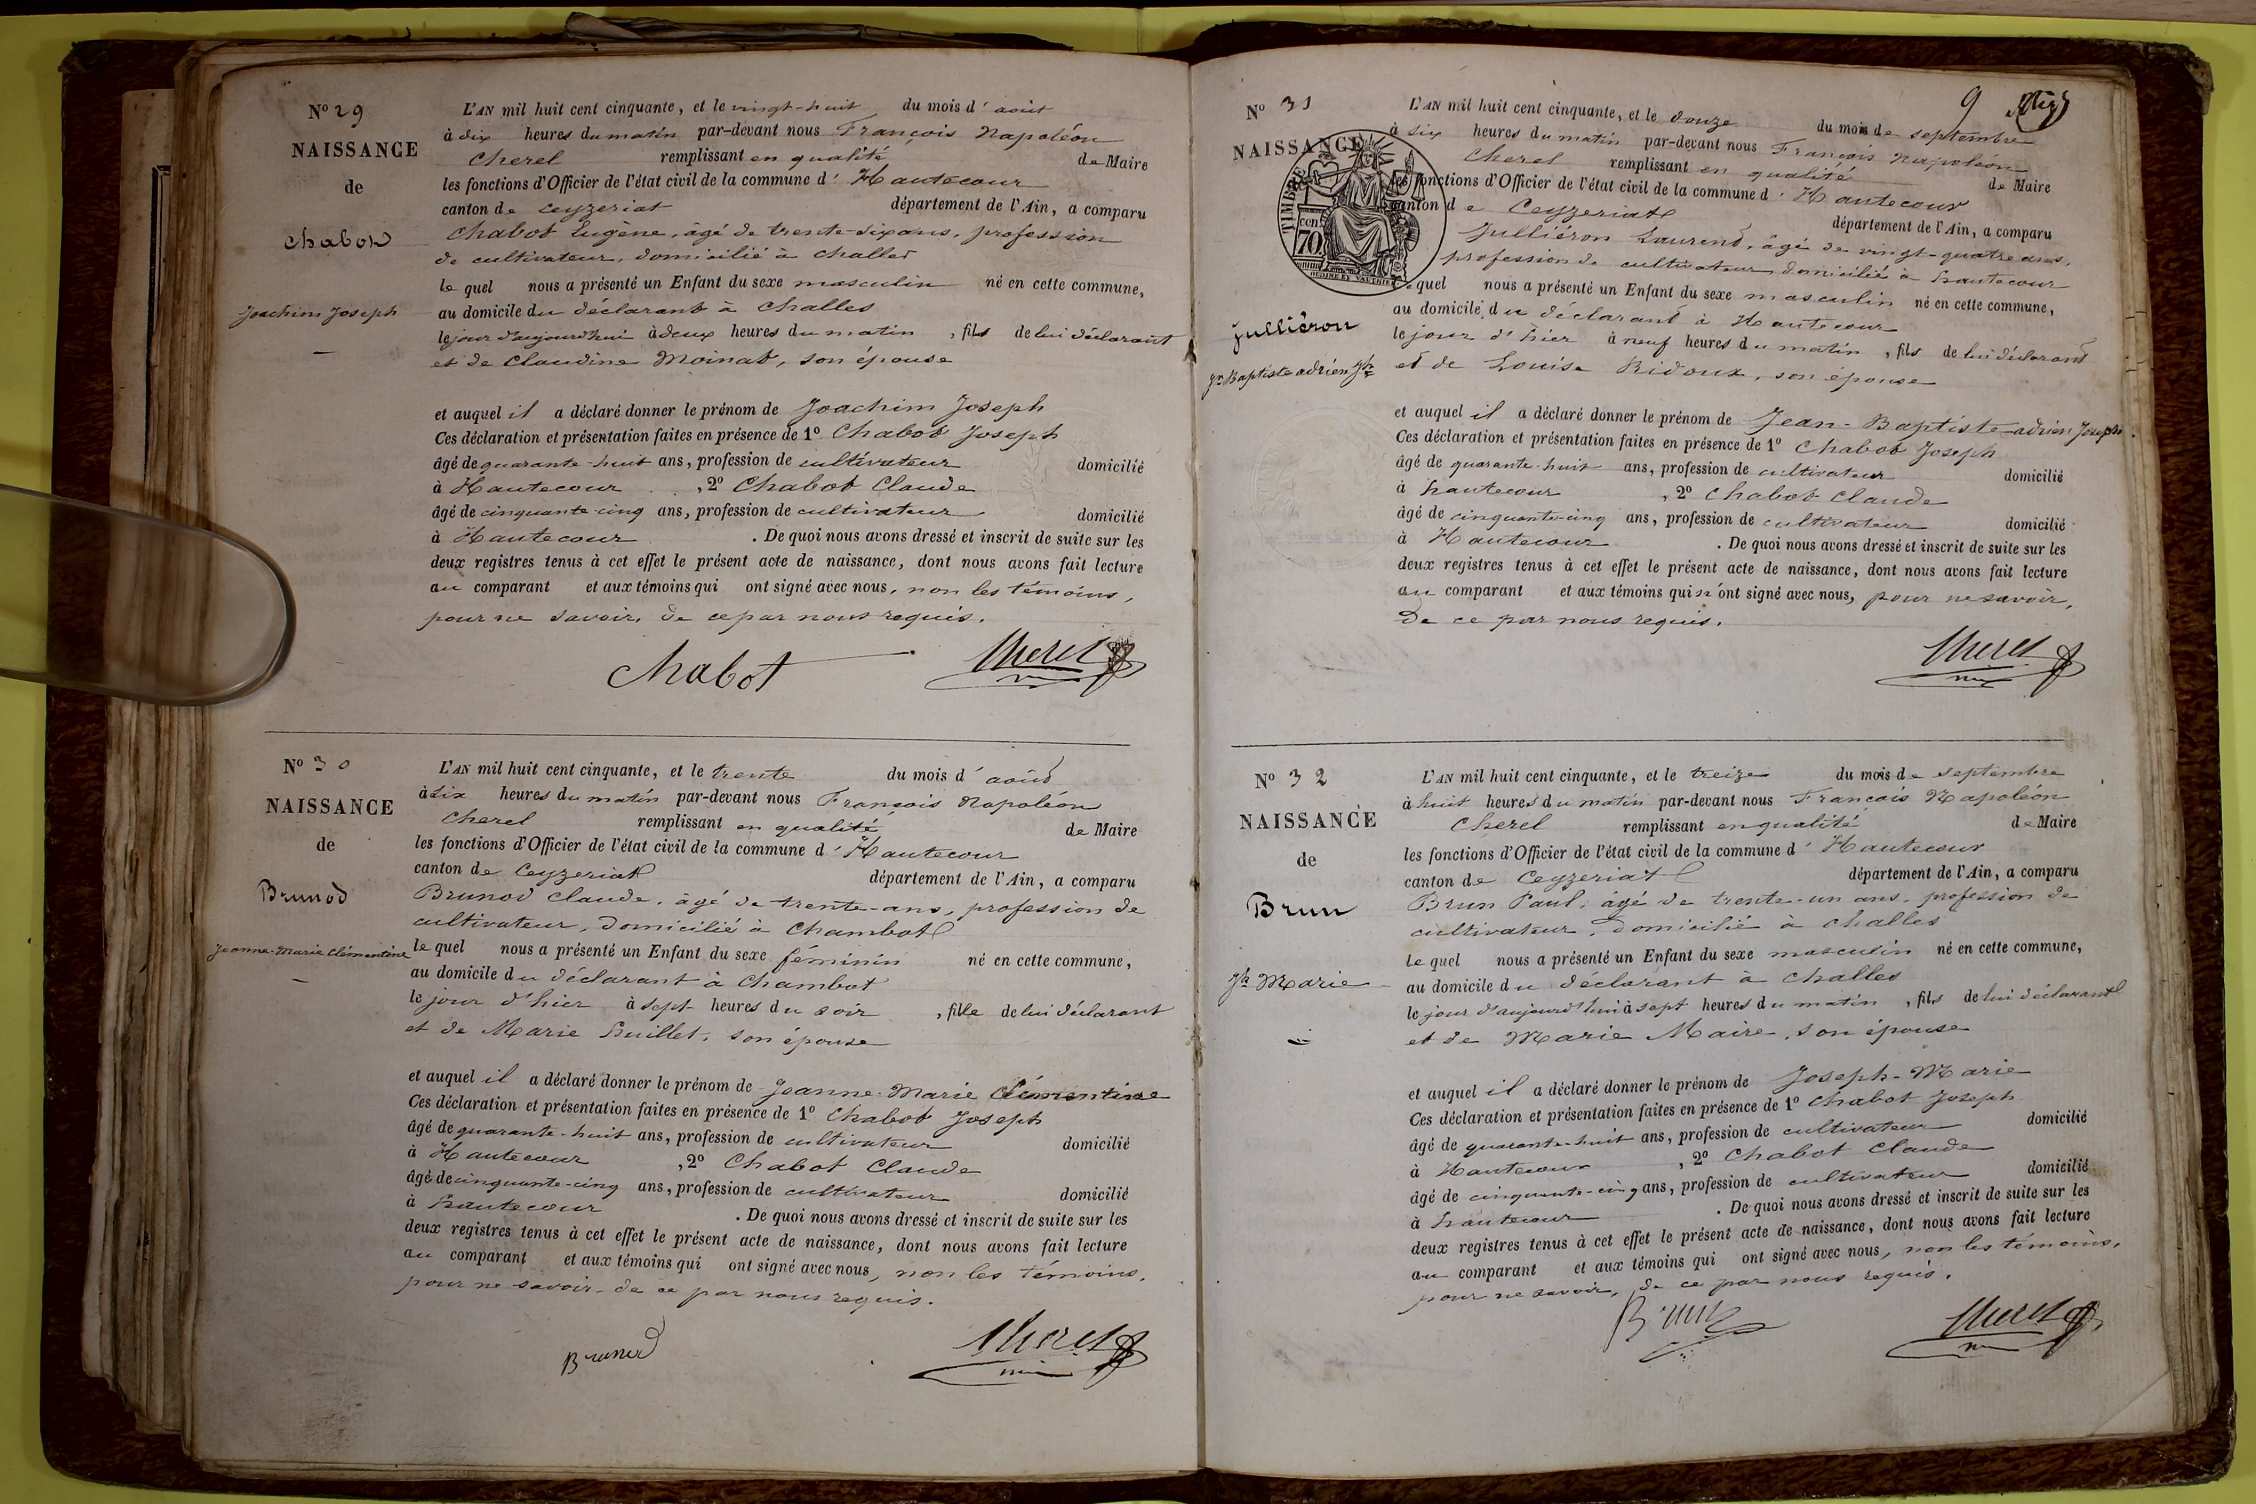 Nº 29
NAISSANCE
de
Chabot
Joachim Joseph
L'AN mil huit cent cinquante, et le vingt-huit du mois d'août
à dix heures du matin par-devant nous François Napoléon
Cherel remplissant en qualité de Maire
les fonctions d'Officier de l'état civil de la commune d'Hautecour
canton de Ceyzeriat département de l'Ain, a comparu
Chabot Eugène, agé de trente-six ans, profession
de cultivateur, domicilié à Challes
le quel nous a présenté un Enfant du sexe masculin né en cette commune,
au domicile du déclarant à Challes
le jour d'aujourd'hui à deux heures du matin, fils de lui déclarant
et de Claudine Moinat, son épouse
et auquel il a déclaré donner le prénom de Joachim Joseph
Ces déclaration et présentation faites en présence de 1º Chabot Joseph
âgé de quarante-huit ans, profession de cultivateur domicilié
à Hautecour, 2º Chabot Claude
âgé de cinquante-cinq ans, profession de cultivateur domicilié
à Hautecour. De quoi nous avons dressé et inscrit de suite sur les
deux registres tenus à cet effet le présent acte de naissance, dont nous avons fait lecture
au comparant et aux témoins qui ont signé avec nous, non les témoins,
pour ne savoir, de ce par nous requis.
Chabot Cherel
Nº 30
NAISSANCE
de
Brunod
Jeanne-Marie Clémentine
L'AN mil huit cent cinquante, et le trente du mois d'août
à six heures du matin par-devant nous François Napoléon
Cherel remplissant en qualité de Maire
les fonctions d'Officier de l'état civil de la commune d'Hautecour
canton de Ceyzeriat département de l'Ain, a comparu
Brunod Claude, âgé de trente-ans, profession de
cultivateur, domicilié à Chambot
le quel nous a présenté un Enfant du sexe féminin né en cette commune,
au domicile du déclarant à Chambot
le jour d'hier à sept heures du soir, fille de lui déclarant
et de Marie Buillet, son épouse
et auquel il a déclaré donner le prénom de Jeanne-Marie Clémentine
Ces déclaration et présentation faites en présence de 1º Chabot Joseph
âgé de quarante-huit ans, profession de cultivateur domicilié
à Hautecour, 2º Chabot Claude
âgé de cinquante-cinq ans, profession de cultivateur domicilié
à hautecour. De quoi nous avons dressé et inscrit de suite sur les
deux registres tenus à cet effet le présent acte de naissance, dont nous avons fait lecture
au comparant et aux témoins qui ont signé avec nous, non les témoins,
pour ne savoir, de ce par nous requis.
Brunod Cherel
9
Nº 31
NAISSANCE
TIMBRE
70
cen
Julliéron
Jn Baptiste adrien Jh
L'AN mil huit cent cinquante, et le douze du mois de septembre
à six heures du matin par-devant nous François Napoléon
Cherel remplissant en qualité de Maire
les fonctions d'Officier de l'état civil de la commune d'Hautecour
canton de Ceyzeriat département de l'Ain, a comparu
Julliéron Laurent, âgé de vingt-quatre ans,
profession de cultivateur domicilié à hautecour
le quel nous a présenté un Enfant du sexe masculin né en cette commune,
au domicile du déclarant à Hautecour
le jour d'hier à neuf heures du matin, fils de lui déclarant
et de Louise Ridoux, son épouse
et auquel il a déclaré donner le prénom de Jean-Baptiste-adrien Joseph.
Ces déclaration et présentation faites en présence de 1º Chabot Joseph
âgé de quarante-huit ans, profession de cultivateur domicilié
à hautecour, 2º Chabot Claude
âgé de cinquante-cinq ans, profession de cultivateur domicilié
à Hautecour. De quoi nous avons dressé et inscrit de suite sur les
deux registres tenus à cet effet le présent acte de naissance, dont nous avons fait lecture
au comparant et aux témoins qui n'ont signé avec nous, pour ne savoir,
de ce par nous requis.
Cherel
Nº 32
NAISSANCE
de
Brun
Jh Marie
L'AN mil huit cent cinquante, et le treize du mois de septembre
à huit heures du matin par-devant nous François Napoléon
Cherel remplissant en qualité de Maire
les fonctions d'Officier de l'état civil de la commune d'Hautecour
canton de Ceyzeriat département de l'Ain, a comparu
Brun Paul, âgé de trente-un ans, profession de
cultivateur, domicilié à Challes
le quel nous a présenté un Enfant du sexe masculin né en cette commune,
au domicile du déclarant à Challes
le jour d'aujourd'hui à sept heures du matin, fils de lui déclarant
et de Marie Maire, son épouse
et auquel il a déclaré donner le prénom de Joseph-Marie
Ces déclaration et présentation faites en présence de 1º Chabot Joseph
âgé de quarante-huit ans, profession de cultivateur domicilié
à Hautecour, 2º Chabot Claude
âgé de cinquante-cinq ans, profession de cultivateur domicilié
à hautecour. De quoi nous avons dressé et inscrit de suite sur les
deux registres tenus à cet effet le présent acte de naissance, dont nous avons fait lecture
au comparant et aux témoins qui ont signé avec nous, non les témoins,
pour ne savoir, de ce par nous requis.
Brun Cherel